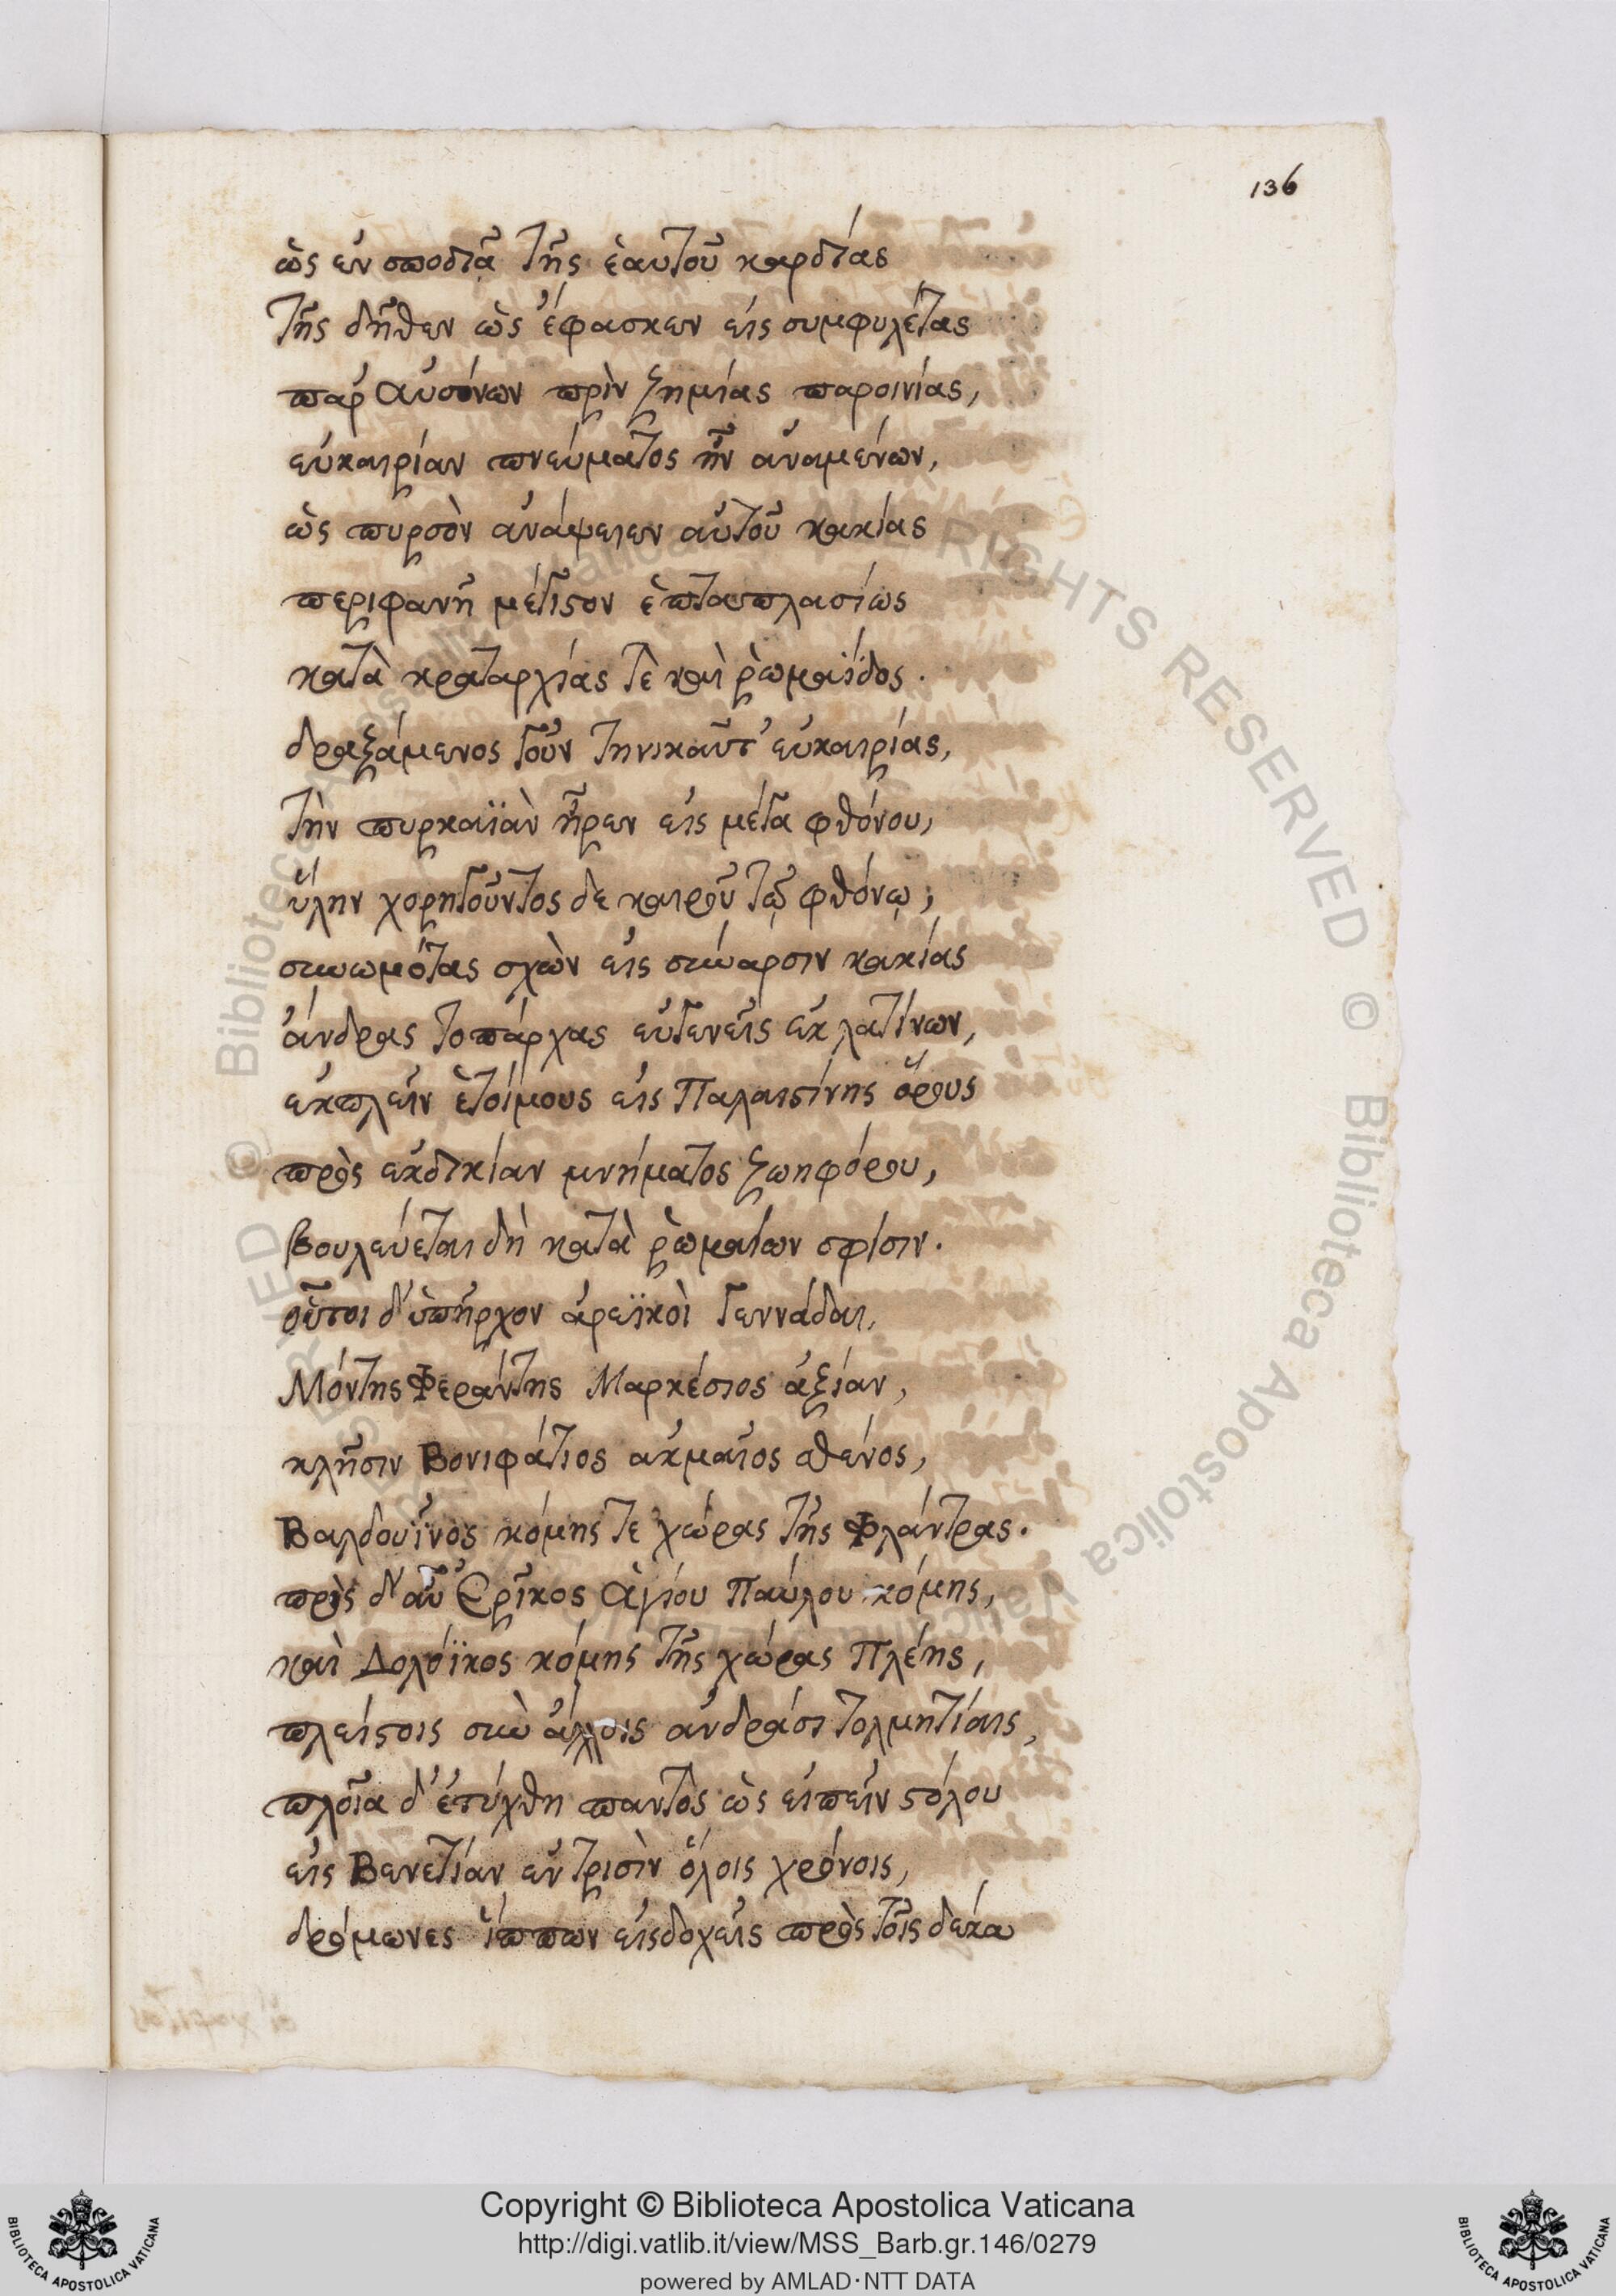 136
ὡς ἐν σποδιᾷ τῆς ἑαυτοῦ καρδίας
τῆς δῆθεν ὡς ἔφασκεν εἰς συμφυλέτας
παρ' Αὐσόνων πρὶν ζημίας παροινίας,
εὐκαιρίαν πνεύματος ἦν ἀναμένων,
ὡς πυρσὸν ἀνάψειεν αὐτοῦ κακίας
περιφανῆ μέγιστον ἑπταπλασίως
κατὰ κραταρχίας τὲ καὶ ῥωμαΐδος.
δραξάμενος γοῦν τηνικαῦτ' εὐκαιρίας,
τὴν πυρκαϊὰν ἦρεν εἰς μέγα φθόνου,
ὕλην χορηγοῦντος δε καιροῦ τῷ φθόνῳ,
συνωμότας σχὼν εἰς συνάρσιν κακίας
ἄνδρας τοπάρχας εὐγενεῖς ἐκ λατίνων,
ἐκπλεῖν ἑτοίμους εἰς Παλαιστίνης ὅρους
πρὸς ἐκδικίαν μνήματος ζωηφόρου,
βουλεύεται δὴ κατὰ ῥωμαίων σφίσιν.
οὗτοι δ' ὑπῆρχον ἀρεϊκοὶ γεννάδαι,
Μόντης Φεράντης Μαρκέσιος ἀξίαν,
κλῆσιν Βονιφάτιος ἀκμαῖος σθένος,
Βαλδουῖνος κόμης τε χώρας τῆς Φλάντρας.
πρὸς δ' αὖ Ἐρῖκος Ἁγίου Παύλου κόμης,
καὶ Δολόϊκος κόμης τῆς χώρας Πλέης,
πλείστοις σὺν ἄλλοις ἀνδράσι τολμητίαις,
πλοῖα δ' ἐτύχθη παντὸς ὡς εἰπεῖν στόλου
εἰς Βενετίαν ἐν τρισὶν ὅλοις χρόνοις,
δρόμωνες ἵππων εἰσδοχεῖς πρὸς τοῖς δέκα
Copyright © Biblioteca Apostolica Vaticana
http://digi.vatlib.it/view/MSS_Barb.gr.146/0279
powered by AMLAD·NTT DATA